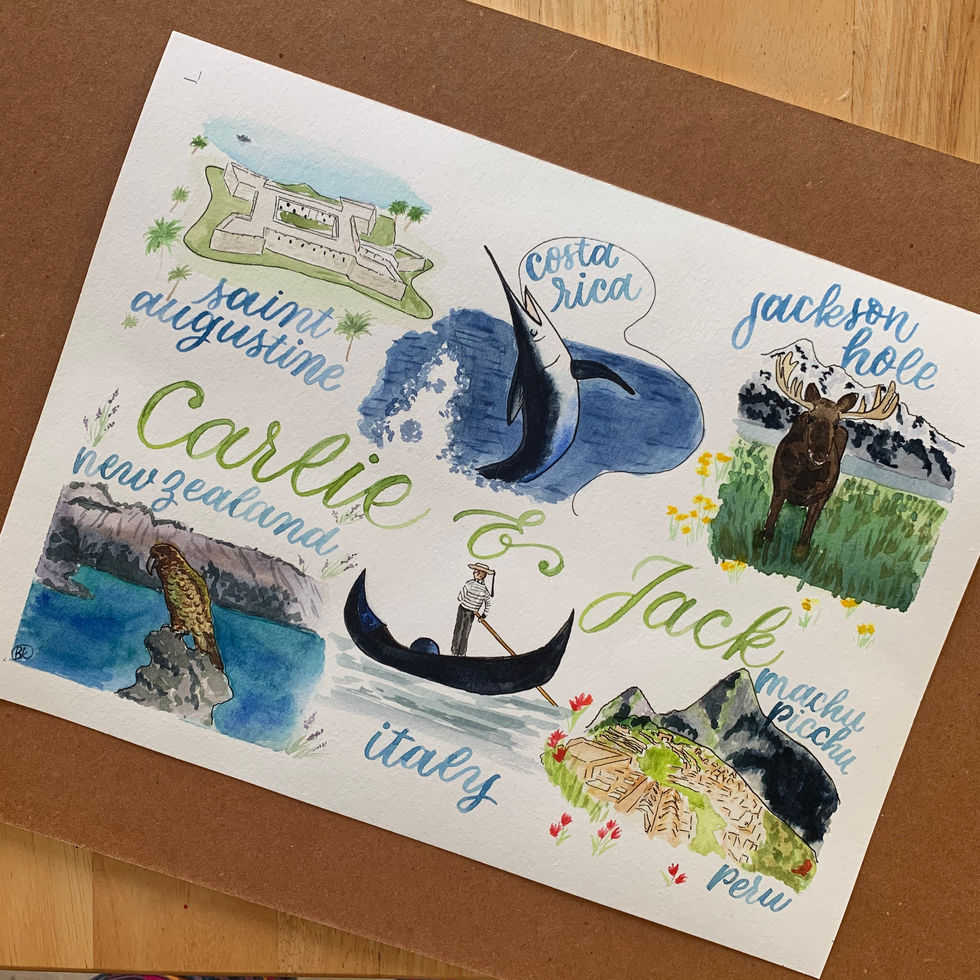 saint
augustine
costa
rica
jackson
hole
Carlie
&
Jack
new zealand
italy
machu
picchu
peru
BK